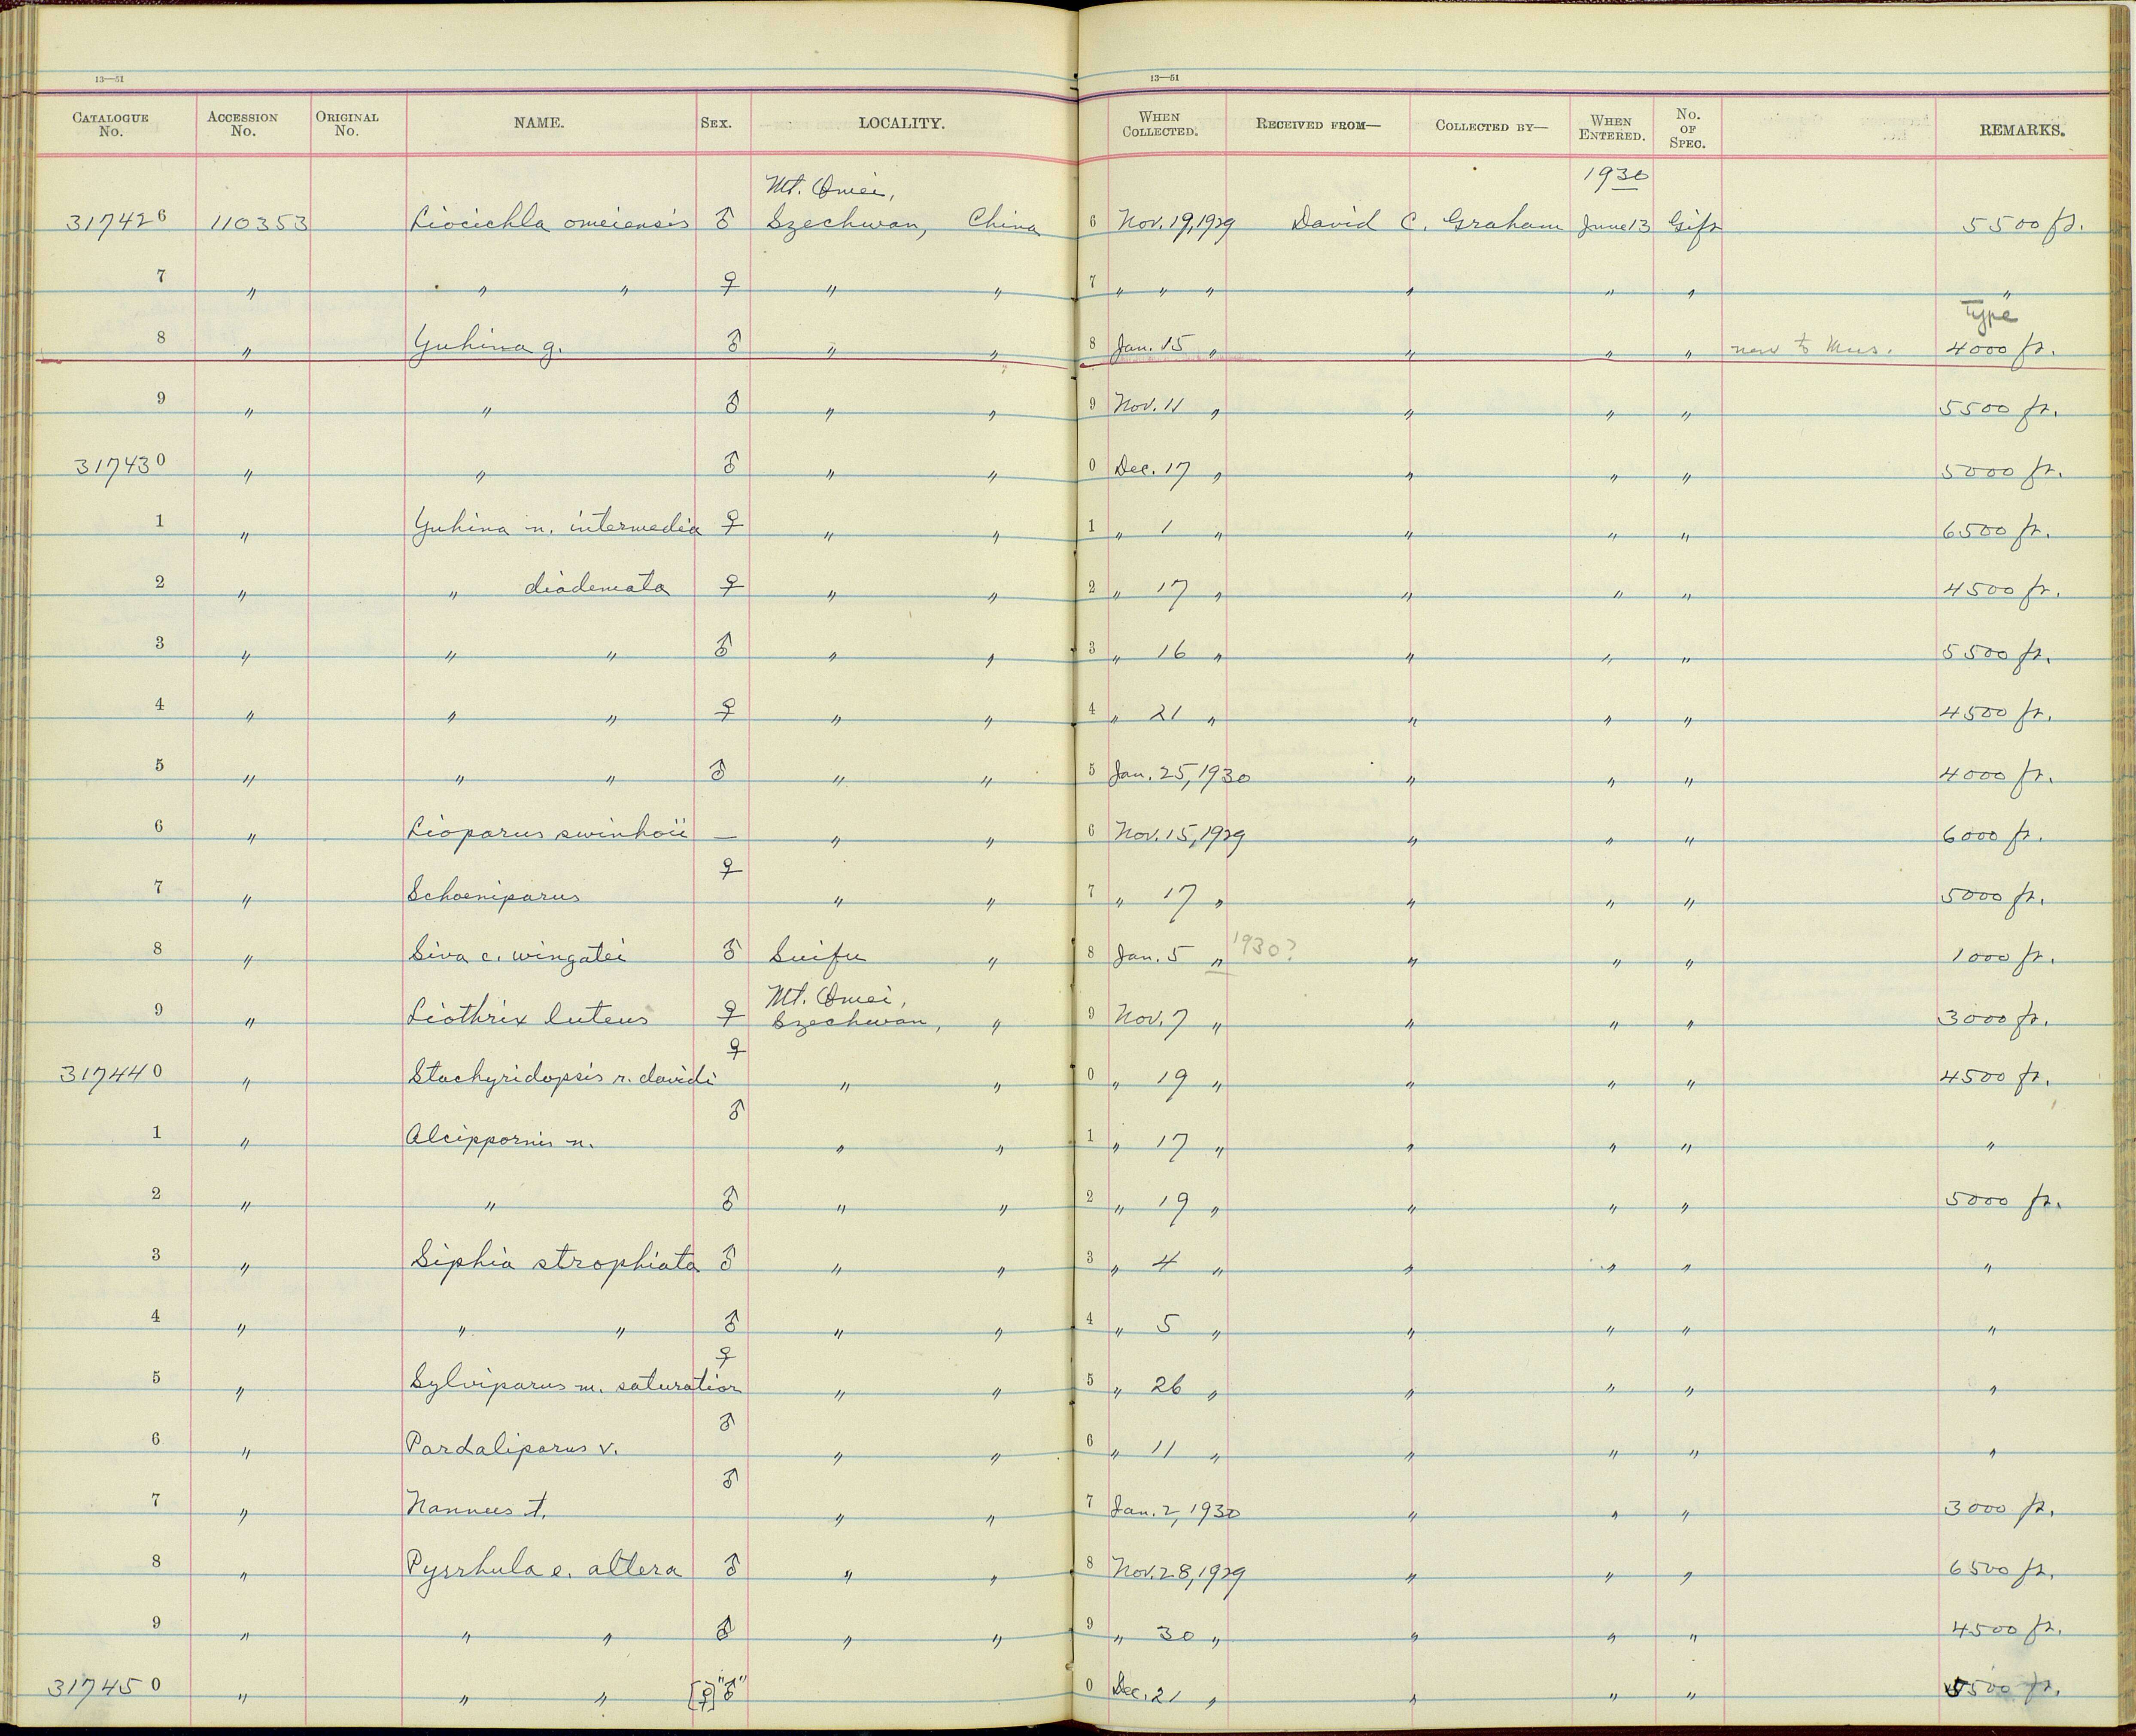 13—51 13—51
CATALOGUE No. ACCESSION No. ORIGINAL No. NAME. SEX. LOCALITY. WHEN COLLECTED. RECEIVED FROM— COLLECTED BY— WHEN ENTERED. No. OF SPEC. REMARKS.
Mt. Omei, 1930
317426 110353 Liocichla omeiensis ♂ Szechwan, China 6 Nov. 19, 1929 David C. Graham June 13 Gift 5500 ft.
7 " " " ♀ " " 7 " " " " " " "
Type
8 " Yuhina g. ♂ " " 8 Jan. 15 " " " " new to Mus. 4000 ft.
9 " " ♂ " " 9 Nov. 11 " " " " 5500 ft.
317430 " " ♂ " " 0 Dec. 17 " " " " 5000 ft.
1 " Yuhina n. intermedia ♀ " " 1 " 1 " " " " 6500 ft.
2 " " diademata ♀ " " 2 " 17 " " " " 4500 ft.
3 " " " ♂ " " 3 " 16 " " " " 5500 ft.
4 " " " ♀ " " 4 " 21 " " " " 4500 ft.
5 " " " ♂ " " 5 Jan. 25, 1930 " " " 4000 ft.
6 " Lioparus swinhoii — " " 6 Nov. 15, 1929 " " " 6000 ft.
7 " Schoeniparus ♀ " " 7 " 17 " " " " 5000 ft.
8 " Siva c. wingatei ♂ Suifu " 8 Jan. 5 " 1930? " " " 1000 ft.
Mt. Omei,
9 " Liothrix luteus ♀ Szechwan, " 9 Nov. 7 " " " " 3000 ft.
317440 " Stachyridopsis r. davidi ♀ " " 0 " 19 " " " " 4500 ft.
1 " Alcippornis n. ♂ " " 1 " 17 " " " " "
2 " " ♂ " " 2 " 19 " " " " 5000 ft.
3 " Siphia strophiata ♂ " " 3 " 4 " " " " "
4 " " " ♂ " " 4 " 5 " " " " "
5 " Sylviparus m. saturatior ♀ " " 5 " 26 " " " " "
6 " Pardaliparus v. ♂ " " 6 " 11 " " " " "
7 " Nannus t. ♂ " " 7 Jan. 2, 1930 " " " 3000 ft.
8 " Pyrrhula e. altera ♂ " " 8 Nov. 28, 1929 " " " 6500 ft.
9 " " " ♂ " " 9 " 30 " " " " 4500 ft.
317450 " " " [♀] "♂" 0 Dec. 21 " " " " 5500 ft.